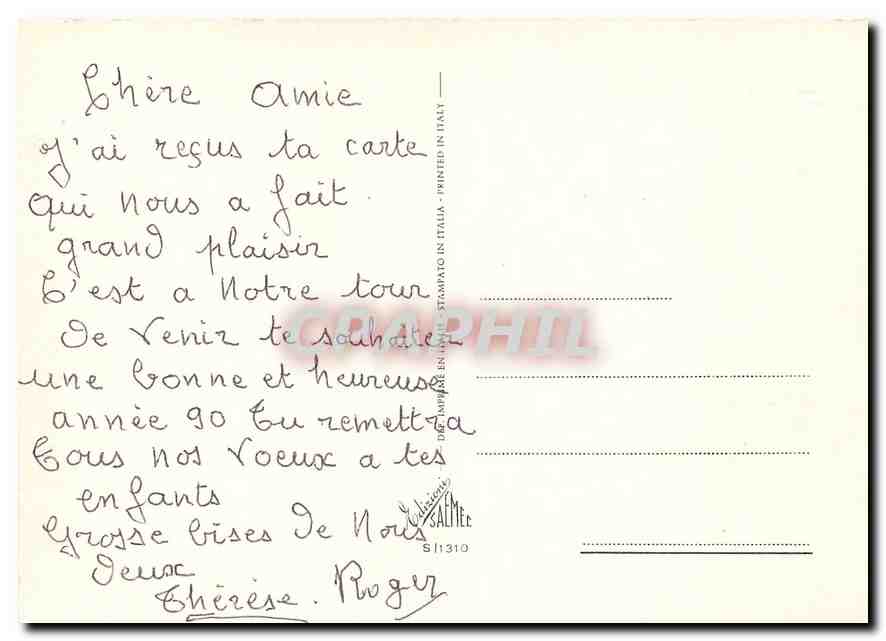 Chère Amie
J'ai reçus ta carte
qui nous a fait
grand plaisir
C'est a notre tour
de venir te souhaiter
une bonne et heureuse
année 90 Tu remettra
tous nos voeux a tes
enfants
Grosse bises de Nous
deux
Thérèse. Roger
STAMPATO IN ITALIA - PRINTED IN ITALY
CPAPHIL
Edizioni
SAEMEC
S/1310